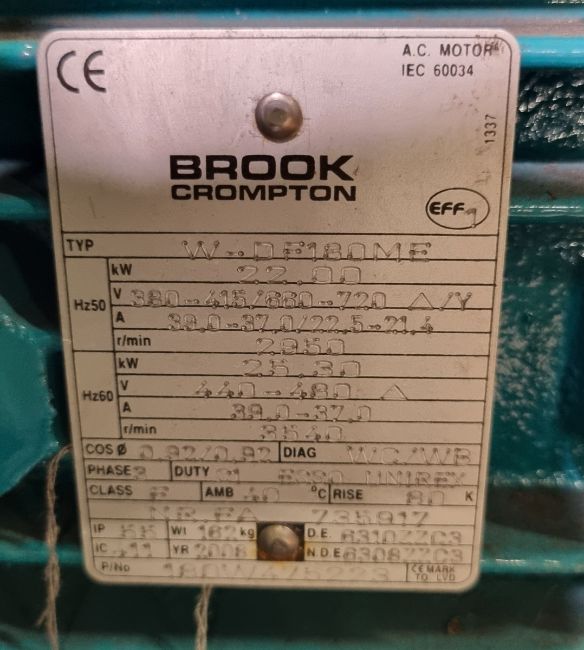 CE
A.C. MOTOR
IEC 60034
1337
BROOK
CROMPTON
EFF1
TYP W-DF180ME
Hz50 kW 22.00
V 380-415/660-720 Δ/Y
A 39.0-37.0/22.5-21.4
r/min 2950
Hz60 kW 25.30
V 440-480 Δ
A 39.0-37.0
r/min 3540
COS Ø 0.92/0.92 DIAG WC/WB
PHASE 3 DUTY S1 UNIREX
CLASS F AMB 40 °C RISE 80 K
735917
IP 55 Wt 162 kg D.E. 6310ZZC3
IC 411 YR 2006 N.D.E 6308ZZC3
P/No
CE MARK
TO LVD